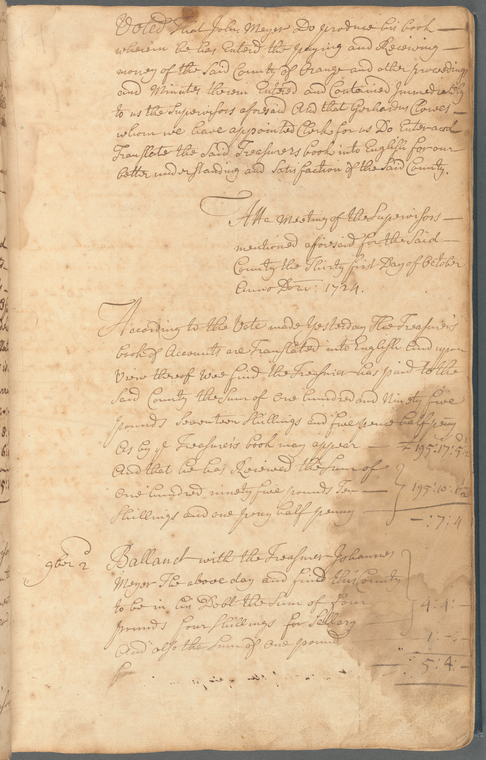 Voted That John Meyer Do produce his book
wherein he has Enterd the paying and Receiving
money of the Said County of Orange and other proceedings
and Minutes therein Entered and Contained Immediately
to us the Supervisors afresaid And that Gerhardus Clowes
whom we have appointed Clerk for us Do Enter and
Translate the Said Treasurers book into English for our
better understanding and Satisfaction of the Said County.
Att a Meeting of the Supervisors
mentioned aforesaid for the Said
County the Thirty first Day of October
Anno Dom: 1724.
According to the Vote made yesterday The Treasurer's
book of Accounts are Translated into English And upon
View thereof wee find the Treasurer has paid to the
Said County the Sum of One hundred and Ninety five
pounds Seventeen Shillings and five pence half peny
As by ye Treasurer's book may appear 195:17:5½
And that he has Received the Sum of
One hundred ninety five pounds Ten
Shillings and one peny half penny 195:10:1½
-:7:4
9ber 2d Ballanct with the Treasurer Johannes
Meyer The above day and find this County
to be in his Debt the Sum of four
pounds four Shillings for Sallary 4:4:-
And also the Sum of One pound 1:-:-
5:4:-